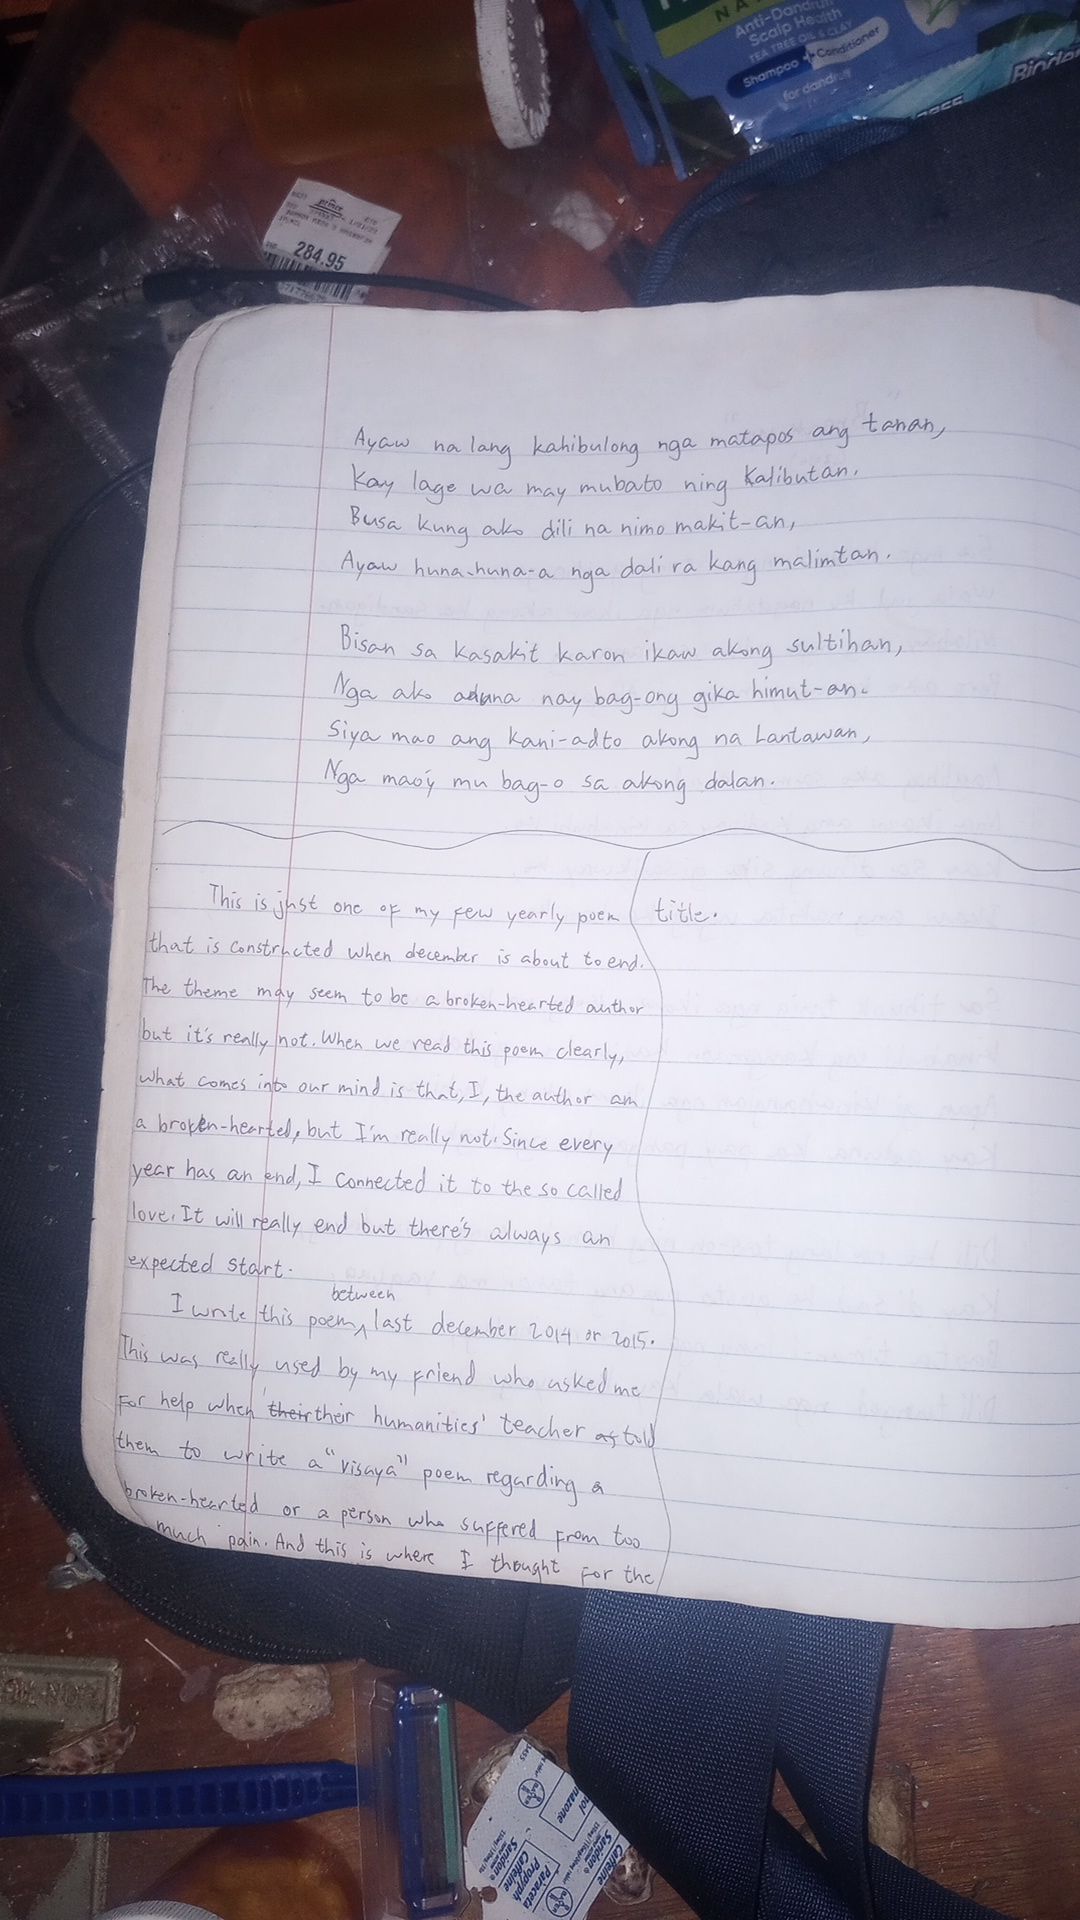 NA
Anti-Dandruff
Scalp Health
TEA TREE OIL & CLAY
Shampoo + Conditioner
for dandruff
prince
284.95
Ayaw na lang kahibulong nga matapos ang tanan,
Kay lage wa may mubato ning Kalibutan.
Busa kung ako dili na nimo makit-an,
Ayaw huna-huna-a nga dali ra kang malimtan.
Bisan sa kasakit karon ikaw akong sultihan,
Nga ako aduna nay bag-ong gika himut-an.
Siya mao ang kani-adto akong na Lantawan,
Nga mao'y mu bag-o sa akong dalan.
This is just one of my few yearly poem
that is constructed when december is about to end.
The theme may seem to be a broken-hearted author
but it's really not. When we read this poem clearly,
what comes into our mind is that, I, the author am
a broken-hearted, but I'm really not. Since every
year has an end, I connected it to the so called
love. It will really end but there's always an
expected start.
I wrote this poem between last december 2014 or 2015.
This was really used by my friend who asked me
for help when their their humanities' teacher as told
them to write a "visaya" poem regarding a
broken-hearted or a person who suffered from too
much pain. And this is where I thought for the
title.
Caffeine
Saridon
Propyph
Paraceta
BAYER
Caffeine
Saridon